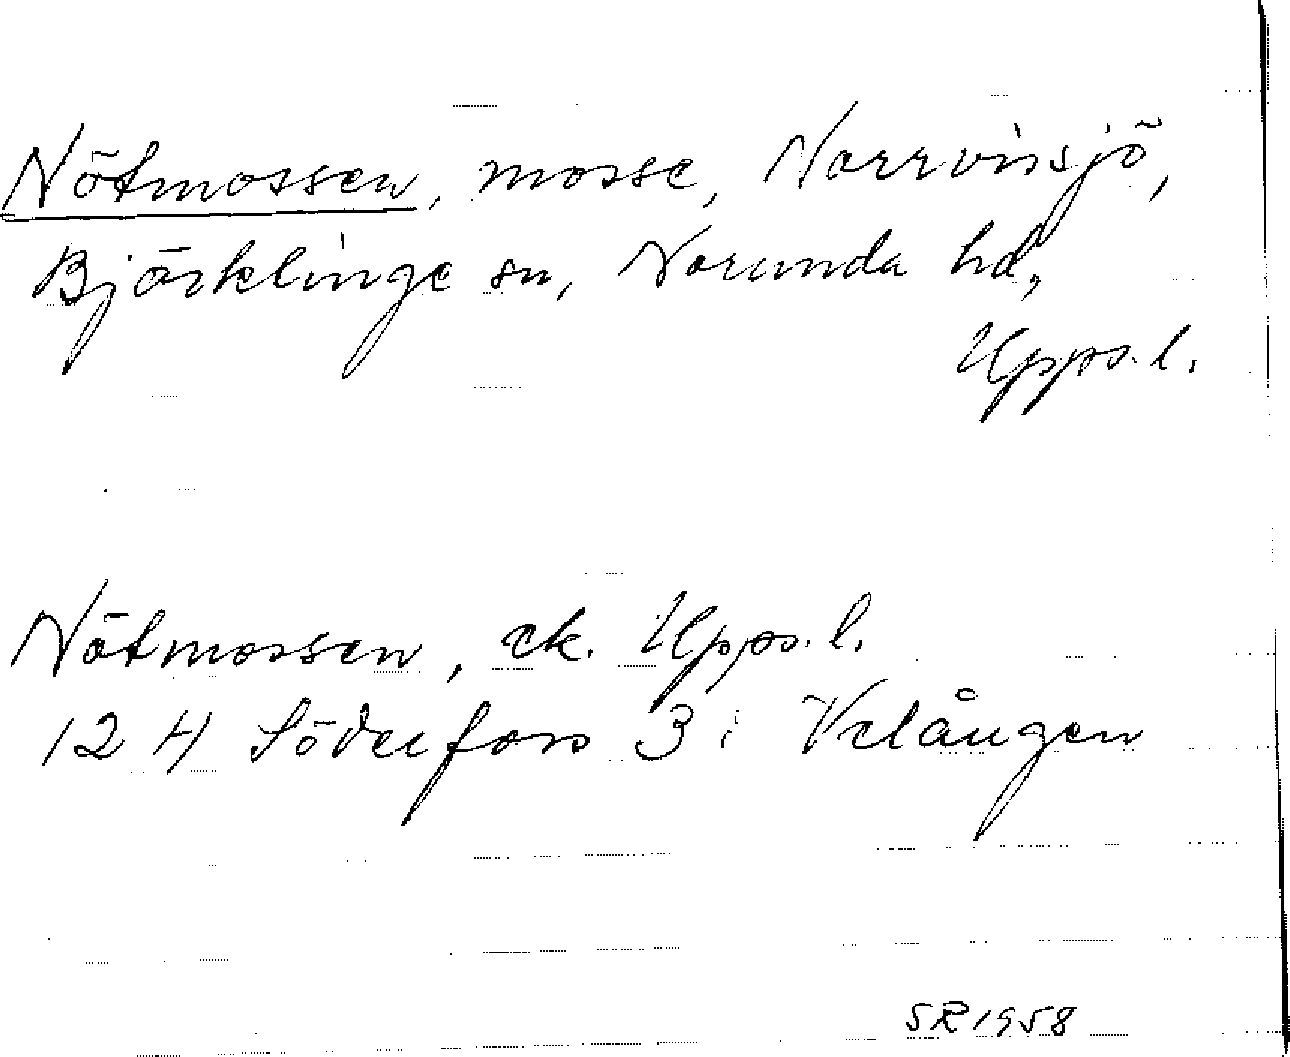 Nötmossen, mosse, Norrvissjö,
Björklinge sn, Norunda hd,
Upps. l.
Nötmossen, ek. Upps. l.
12 H Söderfors 3 i Velången
SR 1958